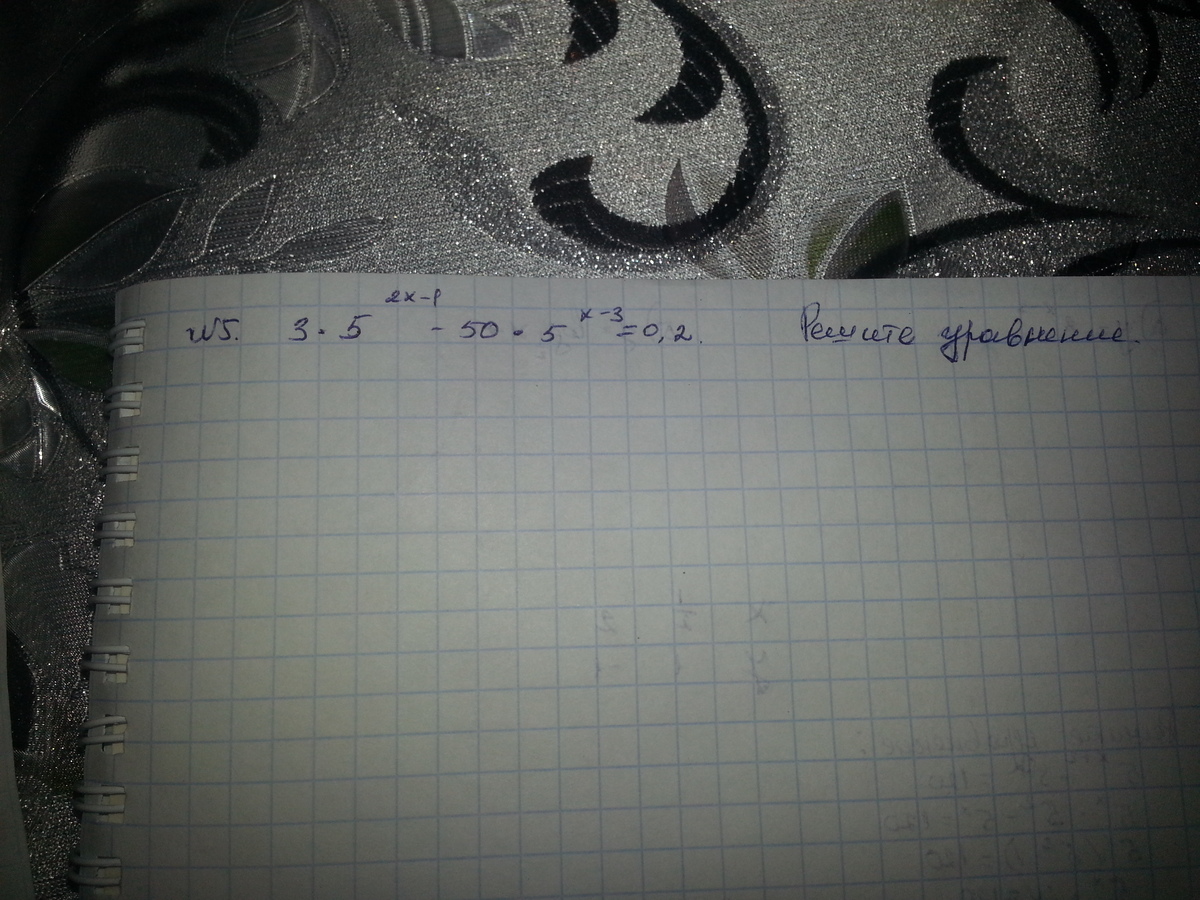 №5. 3 · 5^{2x-1} - 50 · 5^{x-3} = 0,2. Решите уравнение.